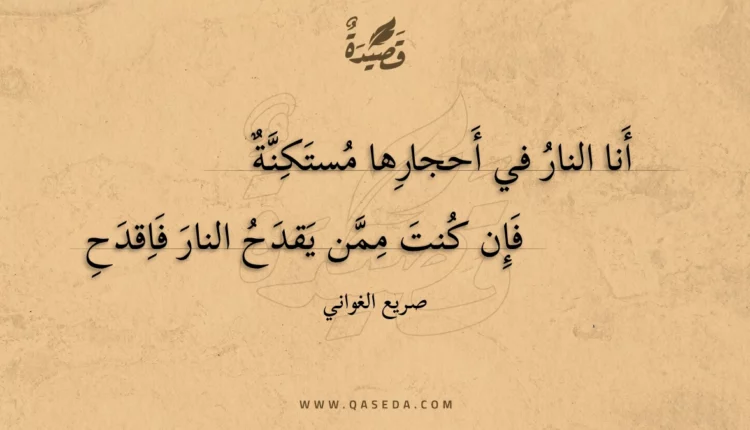 قَصِيدَةٌ
أَنا النارُ في أَحجارِها مُستَكِنَّةٌ
فَإِن كُنتَ مِمَّن يَقدَحُ النارَ فَاِقدَحِ
صريع الغواني
WWW.QASEDA.COM